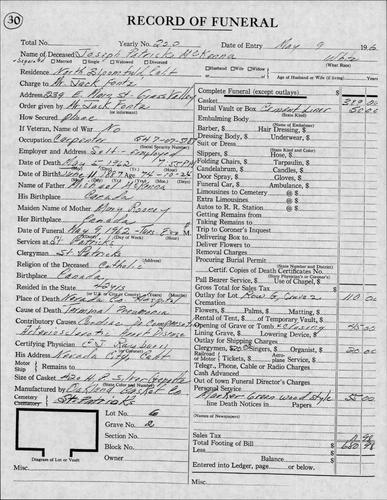 30
RECORD OF FUNERAL
Total No. Yearly No. 220 Date of Entry May 9 1962
Name of Deceased Joseph Patrick McKenna White
(What Race)
Separated Married Single Widowed Divorced Husband Wife Widow of Age of Husband or Wife (if living)
Residence North Bloomfield Calif
Charge to M. Jack
Address 239 E. Main St. Grass Valley
Order given by M. Jack
How Secured phone
If Veteran, Name of War No
Occupation Carpenter 547-07-
(Social Security Number)
Employer and Address Self-employed
Date of Death May 5 1962 7:55 P.M.
Date of Birth June 11 1887 Age 74-10-24
Name of Father McKenna
His Birthplace Canada
Maiden Name of Mother Mary
Her Birthplace Canada
Date of Funeral May 9 1962
Services at St. Patricks
Clergyman St. Patricks
Religion of the Deceased Catholic
Birthplace Canada
Resided in the State 42 yrs
Place of Death Nevada Co. Hospital
Cause of Death Terminal Pneumonia
Contributory Causes Cardiac Decompensation
Certifying Physician
His Address Nevada City Calif
Motor Ship Remains to
Size of Casket
Manufactured by Oakland Casket Co.
Cemetery Crematory St. Patricks
Lot No. 6
Grave No. 2
Section No.
Block No.
Owner
Diagram of Lot or Vault
Misc.
Complete Funeral (except outlays) $
Casket
Burial Vault or Box Cement Liner 50 00
(State Kind)
Embalming Body
(Name of Embalmer)
Barber, $ Hair Dressing, $
Dressing Body, $ Underwear, $
Suit or Dress
(State Kind and Color)
Slippers, $ Hose, $
Folding Chairs, $ Tarpaulin, $
Candelabrum, $ Candles, $
Door Spray, $ Gloves, $
Funeral Car, $ Ambulance, $
Limousines to Cemetery @ $
Extra Limousines @ $
Autos to R. R. Station @ $
Getting Remains from
Taking Remains to
Trip to Coroner's Inquest
Delivering Box to
Deliver Flowers to
Removal Charges
Procuring Burial Permit
(State Number and District)
Certif. Copies of Death Certificates No.
(State Physician's or Coroner's)
Pall Bearer Service, $ Use of Chapel, $
Gross Total for Sales Tax $
Outlay for Lot Row 6 Grave 2 110 00
Cremation
Flowers, $ Palms, $ Matting, $
Rental of Tent, $ of Temporary Vault, $
Opening of Grave or Tomb & closing 45 00
Lining Grave, $ Lowering Device, $
Outlay for Shipping Charges
Clergymen, $ 20.00 Singers, $ Organist, $ 20 00
Railroad or Motor Tickets, $ Aero-plane Service, $
Telegr., Phone, Cable or Radio Charges
Cash Advanced
Out of town Funeral Director's Charges
Personal Service
Marker Green wood style 55 00
line Death Notices in Papers
(Names of Newspapers)
Sales Tax
Total Footing of Bill $
Less $
Balance $
Entered into Ledger, page or below.
Misc.